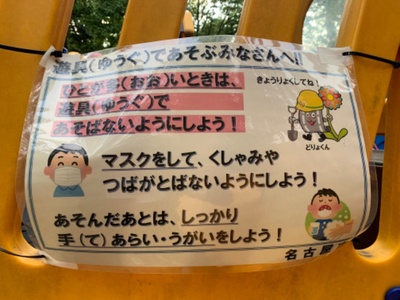 遊具(ゆうぐ)であそぶみなさんへ!!
ひとが多(おお)いときは、
遊具(ゆうぐ)で
あそばないようにしよう!
きょうりょくしてね!
どりょくん
マスクをして、くしゃみや
つばがとばないようにしよう!
あそんだあとは、しっかり
手(て)あらい・うがいをしよう!
名古屋